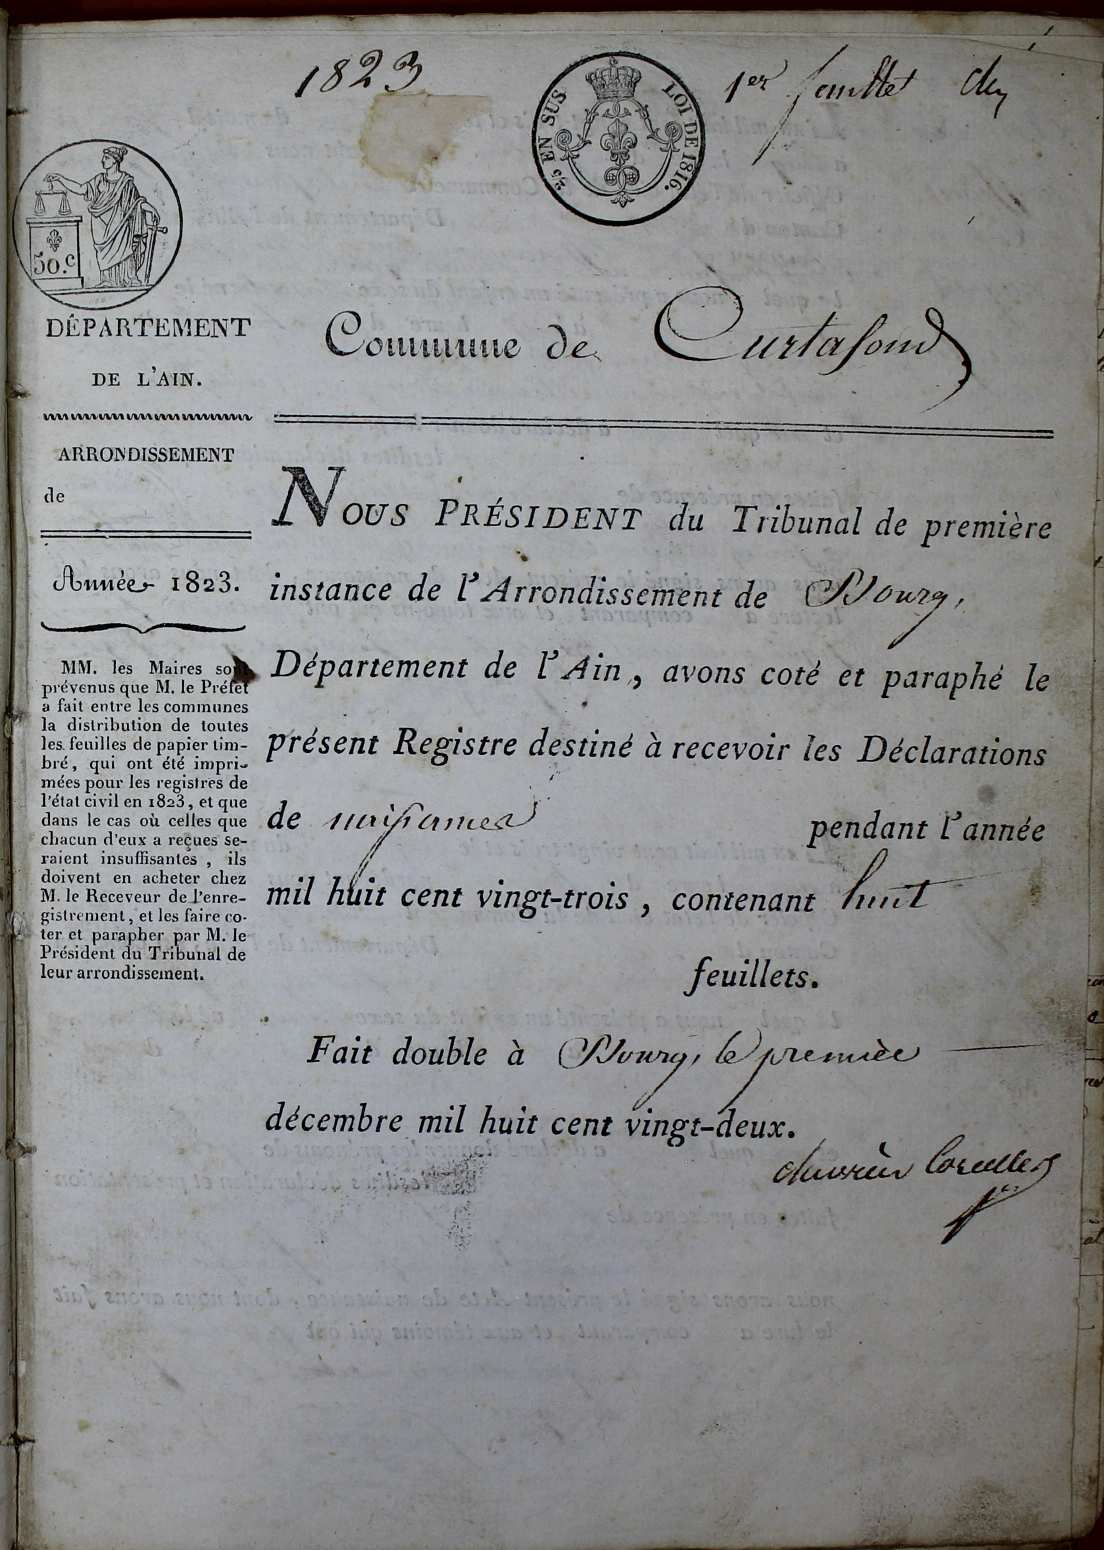 1823
1er feuillet
EN SUS LOI DE 1816.
50.c
DÉPARTEMENT
DE L'AIN.
Commune de Curtafond
ARRONDISSEMENT
de
Année 1823.
MM. les Maires sont
prévenus que M. le Préfet
a fait entre les communes
la distribution de toutes
les feuilles de papier tim-
bré, qui ont été impri-
mées pour les registres de
l'état civil en 1823, et que
dans le cas où celles que
chacun d'eux a reçues se-
raient insuffisantes, ils
doivent en acheter chez
M. le Receveur de l'enre-
gistrement, et les faire co-
ter et parapher par M. le
Président du Tribunal de
leur arrondissement.
NOUS PRÉSIDENT du Tribunal de première
instance de l'Arrondissement de Bourg,
Département de l'Ain, avons coté et paraphé le
présent Registre destiné à recevoir les Déclarations
de naissances pendant l'année
mil huit cent vingt-trois, contenant huit
feuillets.
Fait double à Bourg, le premier
décembre mil huit cent vingt-deux.